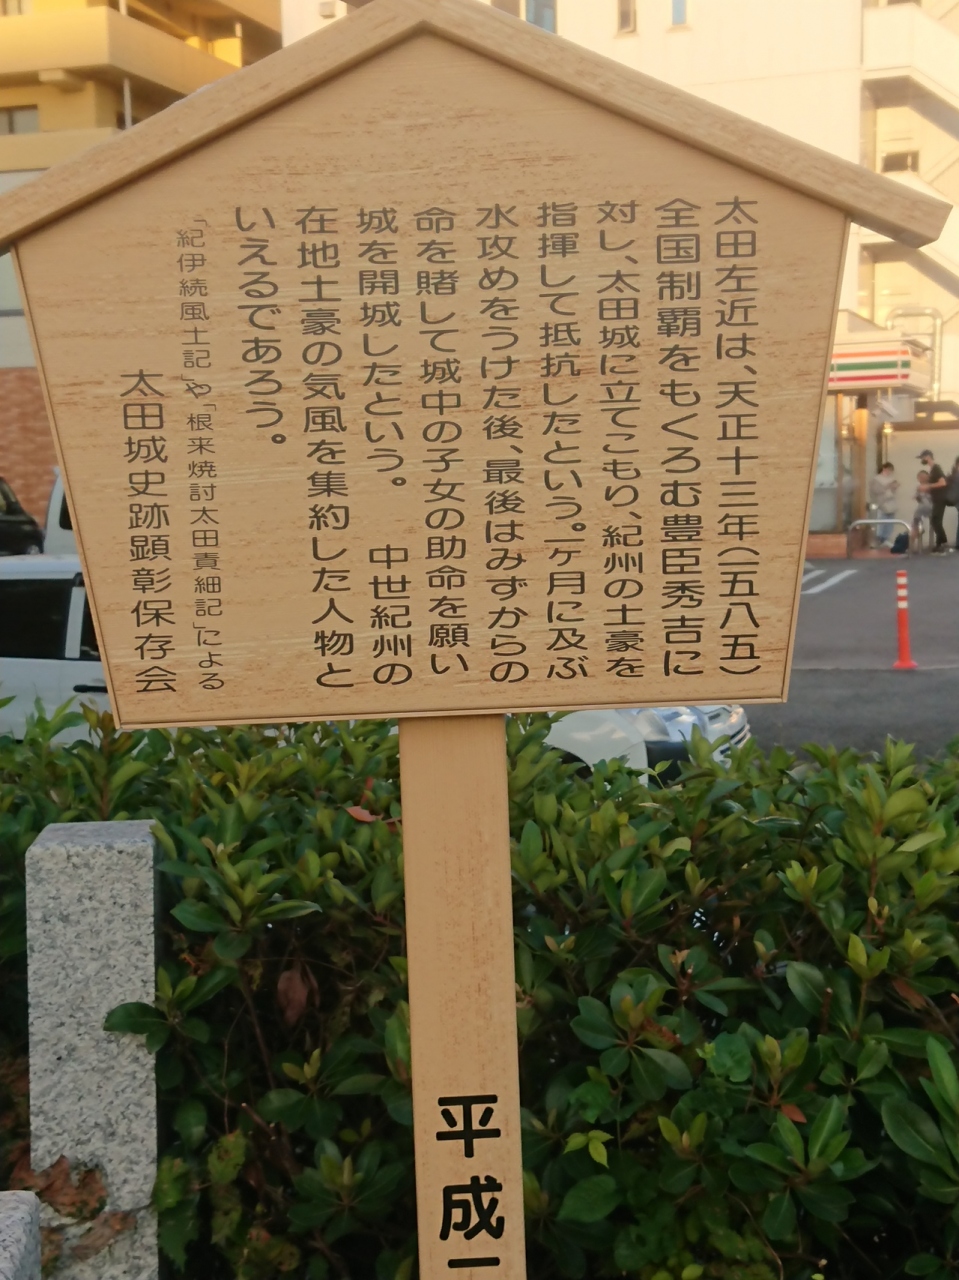 太田左近は、天正十三年(一五八五)
全国制覇をもくろむ豊臣秀吉に
対し、太田城に立てこもり、紀州の土豪を
指揮して抵抗したという。一ヶ月に及ぶ
水攻めをうけた後、最後はみずからの
命を賭して城中の子女の助命を願い
城を開城したという。 中世紀州の
在地土豪の気風を集約した人物と
いえるであろう。
「紀伊続風土記」や「根来焼討太田責細記」による
太田城史跡顕彰保存会
平成